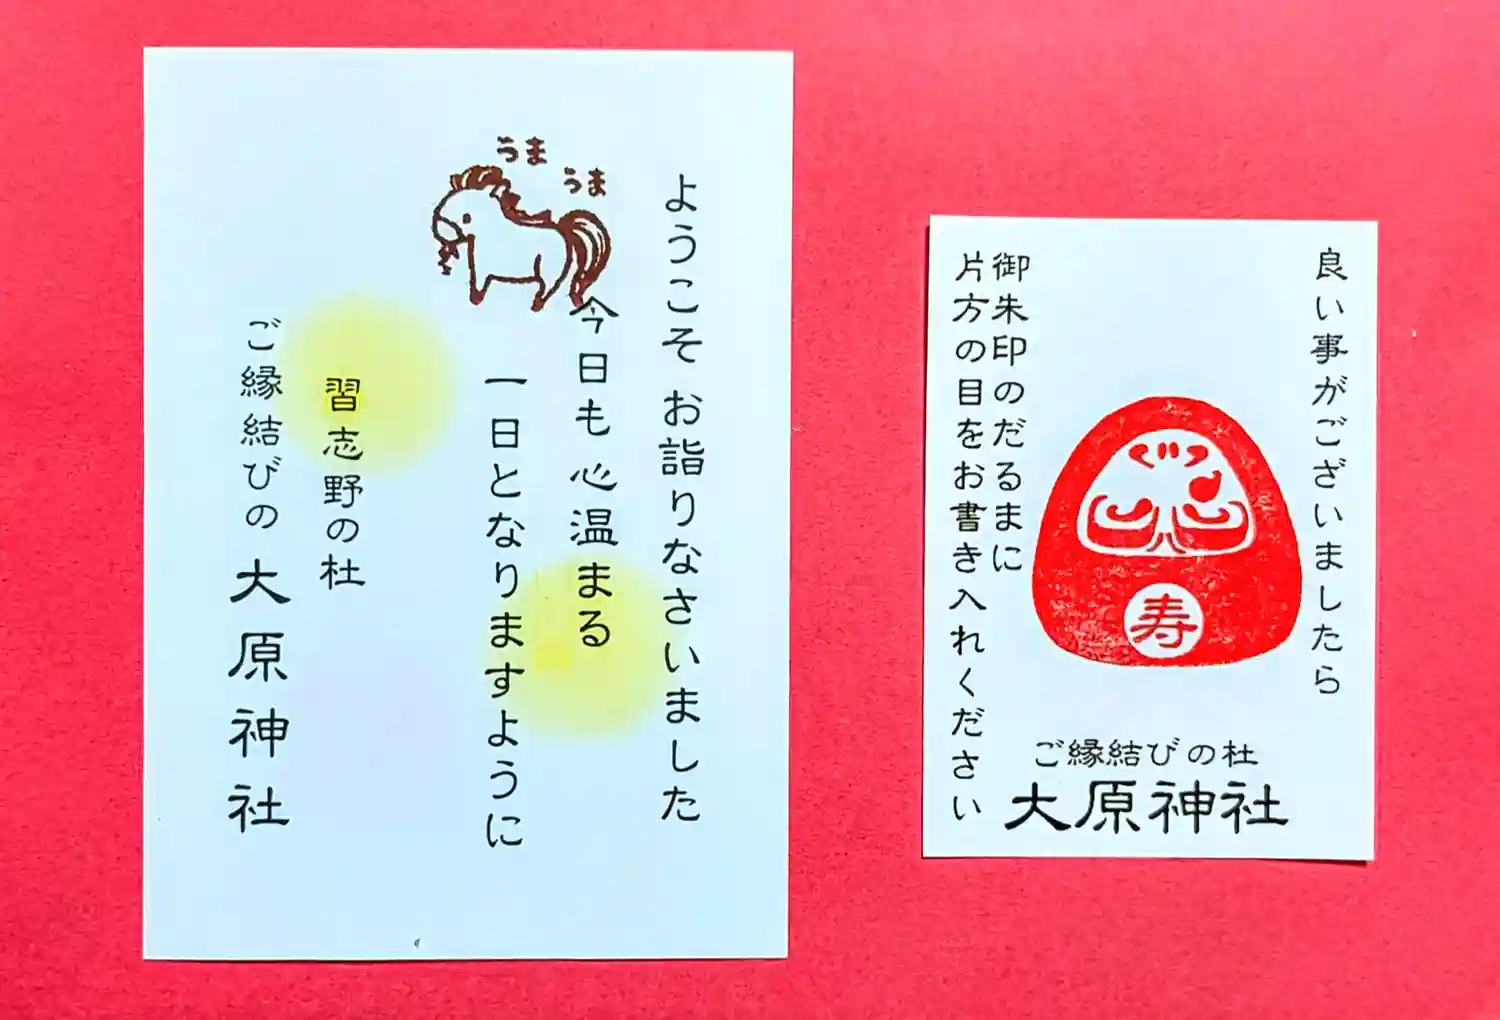 うま
うま
ようこそ お詣りなさいました
今日も 心温まる
一日となりますように
習志野の杜
ご縁結びの 大原神社
良い事がございましたら
御朱印のだるまに
片方の目をお書き入れください
寿
ご縁結びの杜
大原神社